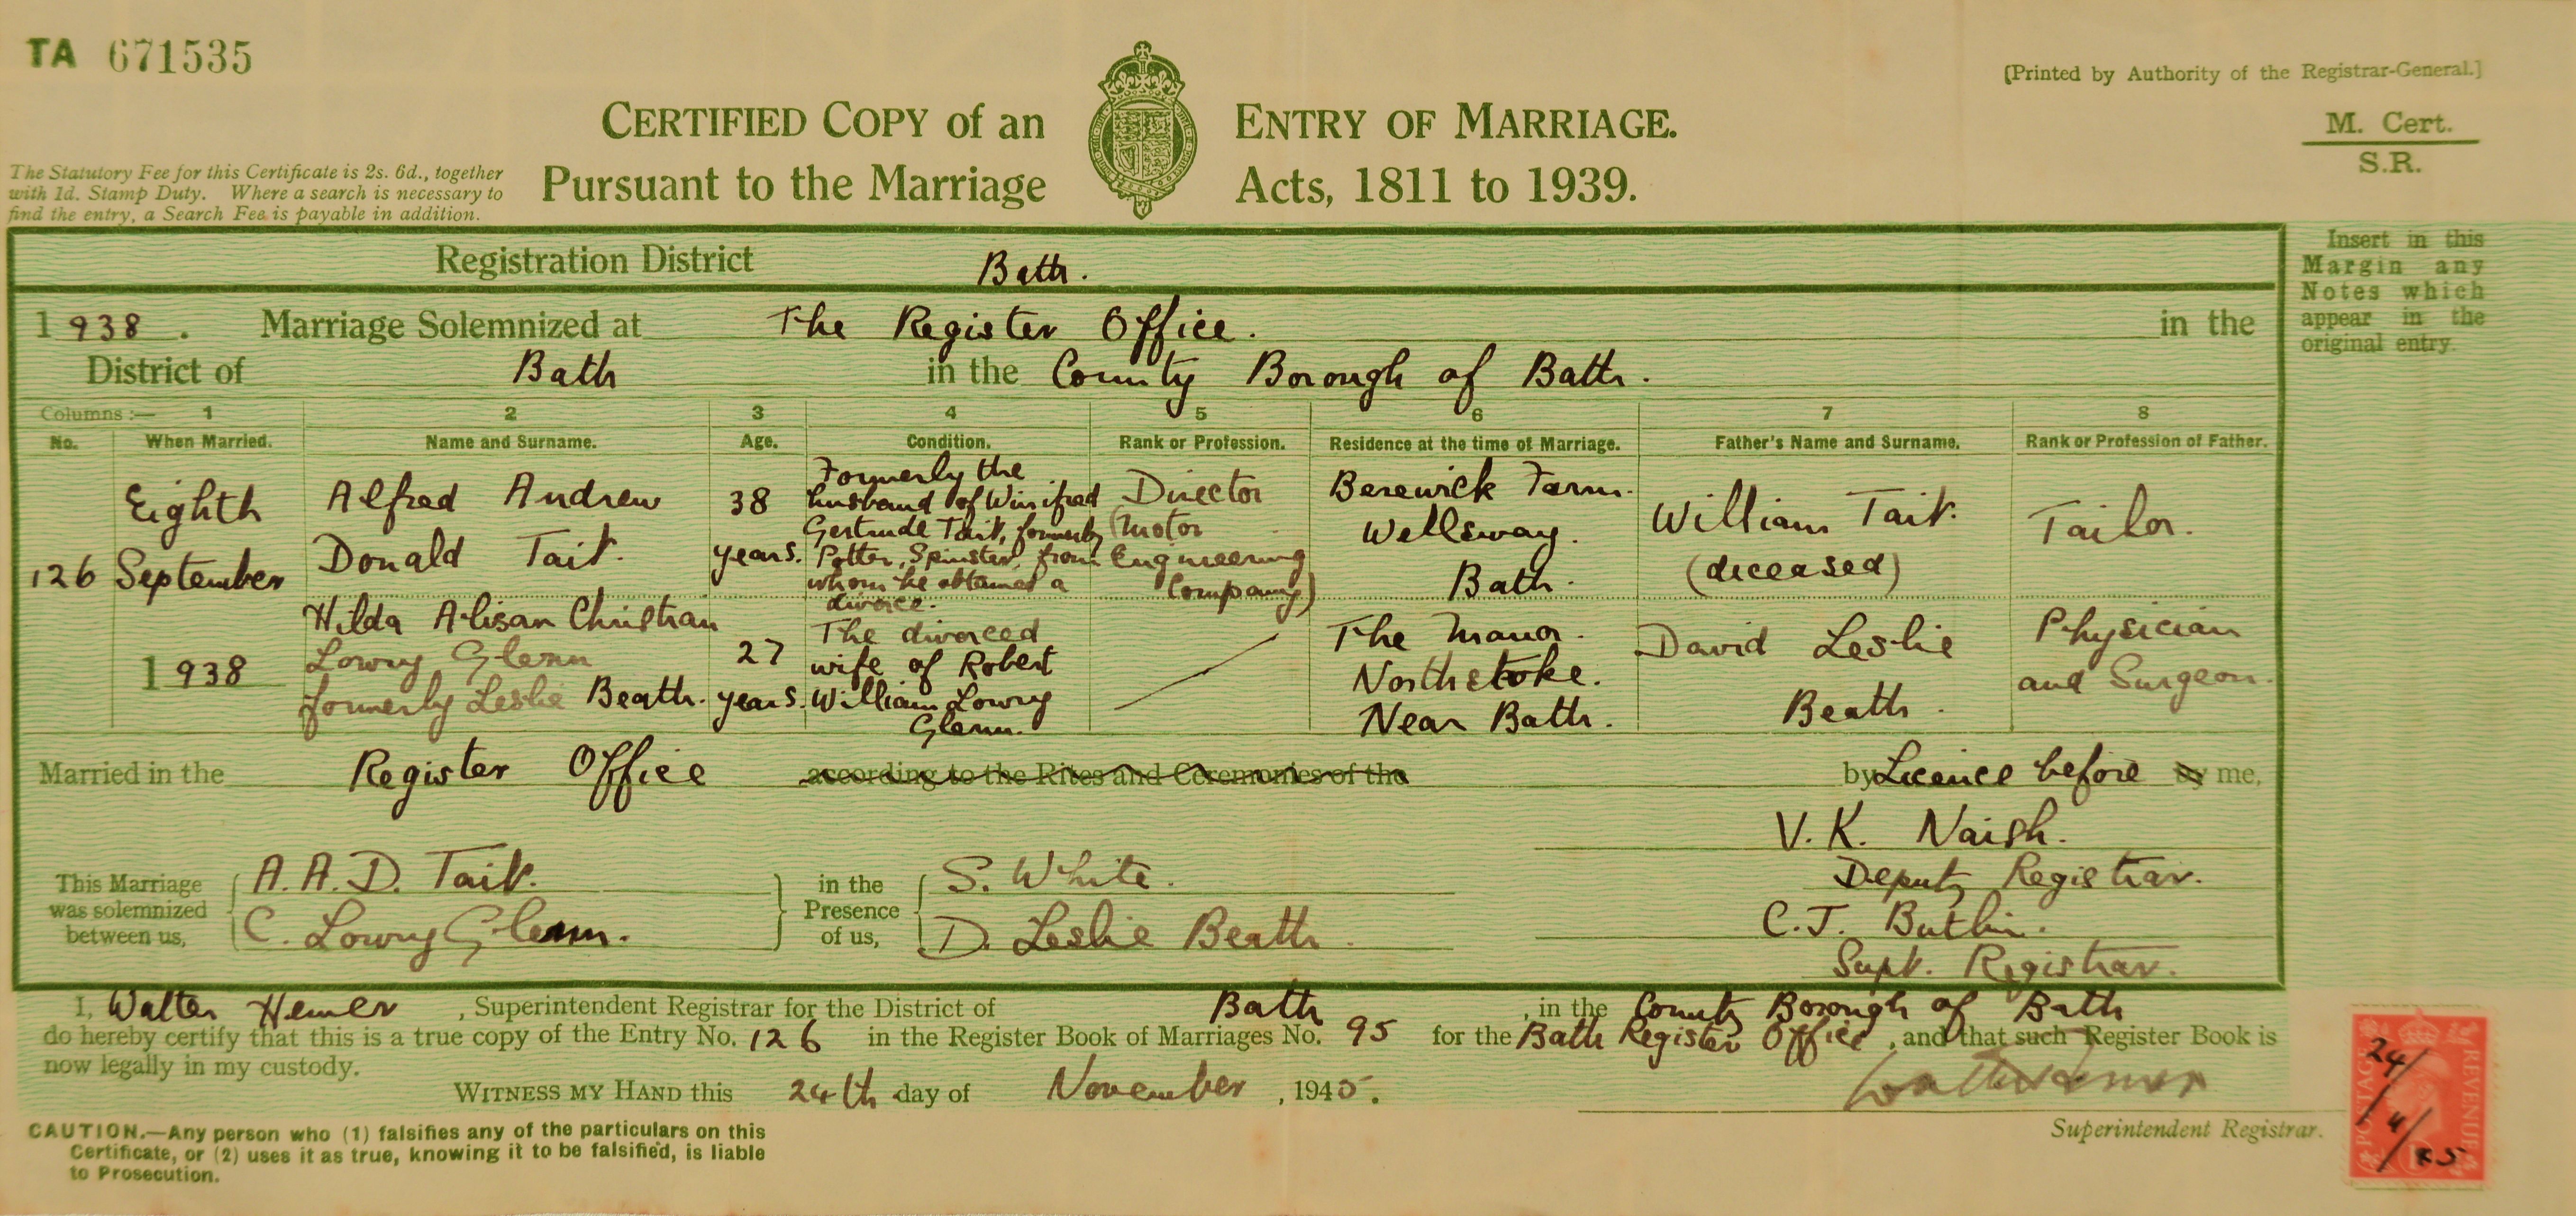 TA 671535
[Printed by Authority of the Registrar-General.]
CERTIFIED COPY of an ENTRY OF MARRIAGE.
Pursuant to the Marriage Acts, 1811 to 1939.
M. Cert.
S.R.
The Statutory Fee for this Certificate is 2s. 6d., together
with 1d. Stamp Duty. Where a search is necessary to
find the entry, a Search Fee is payable in addition.
Insert in this
Margin any
Notes which
appear in the
original entry.
Registration District Bath.
1938. Marriage Solemnized at The Register Office. in the
District of Bath in the County Borough of Bath.
Columns :— 1 2 3 4 5 6 7 8
No. When Married. Name and Surname. Age. Condition. Rank or Profession. Residence at the time of Marriage. Father's Name and Surname. Rank or Profession of Father.
126
Eighth
September
1938
Alfred Andrew
Donald Tait.
38
years.
Formerly the
husband of Winifred
Gertrude Tait, formerly
Potter, Spinster, from
whom he obtained a
divorce.
Director
(Motor
Engineering
Company)
Berewick Farm.
Wellsway.
Bath.
William Tait.
(deceased)
Tailor.
Hilda Alison Christian
Lowry Glenn
formerly Leslie Beath.
27
years.
The divorced
wife of Robert
William Lowry
Glenn.
The Manor.
Northstoke.
Near Bath.
David Leslie
Beath.
Physician
and Surgeon.
Married in the Register Office according to the Rites and Ceremonies of the by Licence before by me,
This Marriage
was solemnized
between us,
A. A. D. Tait.
C. Lowry Glenn.
in the
Presence
of us,
S. White.
D. Leslie Beath.
V. K. Naish.
Deputy Registrar.
C. J. Butlin.
Supt. Registrar.
I, Walter Hemer, Superintendent Registrar for the District of Bath, in the County Borough of Bath
do hereby certify that this is a true copy of the Entry No. 126 in the Register Book of Marriages No. 95 for the Bath Register Office, and that such Register Book is
now legally in my custody.
WITNESS MY HAND this 24th day of November, 1945.
Walter Hemer
Superintendent Registrar.
CAUTION.—Any person who (1) falsifies any of the particulars on this
Certificate, or (2) uses it as true, knowing it to be falsified, is liable
to Prosecution.
POSTAGE
REVENUE
24/
11/
45